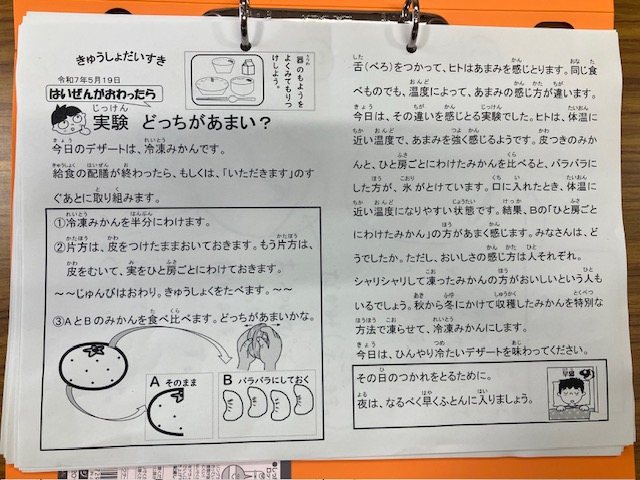 きゅうしょだいすき
令和7年5月19日
はいぜんがおわったら
器のもようを
よくみてもりつ
けしよう。
実験 どっちがあまい？
今日のデザートは、冷凍みかんです。
給食の配膳が終わったら、もしくは、「いただきます」のす
ぐあとに取り組みます。
①冷凍みかんを半分にわけます。
②片方は、皮をつけたままおいておきます。もう片方は、
皮をむいて、実をひと房ごとにわけておきます。
～～じゅんびはおわり。きゅうしょくをたべます。～～
③AとBのみかんを食べ比べます。どっちがあまいかな。
A そのまま
B バラバラにしておく
舌(べろ)をつかって、ヒトはあまみを感じとります。同じ食
べものでも、温度によって、あまみの感じ方が違います。
今日は、その違いを感じとる実験でした。ヒトは、体温に
近い温度で、あまみを強く感じるようです。皮つきのみか
んと、ひと房ごとにわけたみかんを比べると、バラバラに
した方が、氷がとけています。口に入れたとき、体温に
近い温度になりやすい状態です。結果、Bの「ひと房ごと
にわけたみかん」の方があまく感じます。みなさんは、ど
うでしたか。ただし、おいしさの感じ方は人それぞれ。
シャリシャリして凍ったみかんの方がおいしいという人も
いるでしょう。秋から冬にかけて収穫したみかんを特別な
方法で凍らせて、冷凍みかんにします。
今日は、ひんやり冷たいデザートを味わってください。
その日のつかれをとるために。
夜は、なるべく早くふとんに入りましょう。
早寝